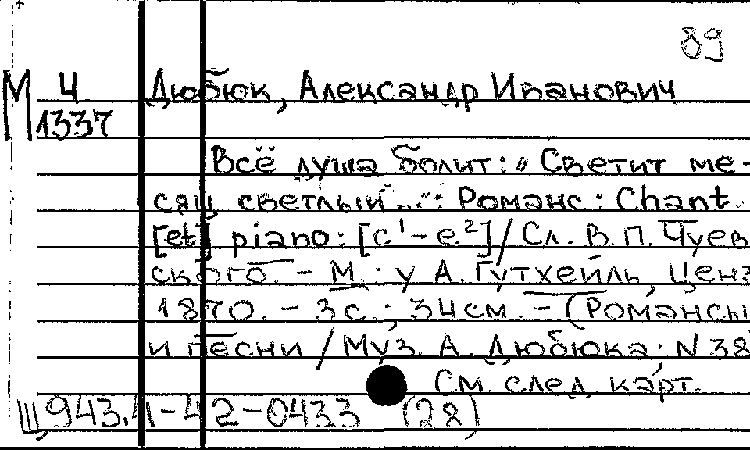 89
М Ч Дюбюк, Александр Иванович
1337
Всё душа болит: „Светит ме-
сяц светлый...“: Романс: Chant
[et] piano: [c¹-e²]/ Сл. В. П. Чуев
ского. - М.: у А. Гутхейль, Ценз
1870. - 3 с.; 34 см. - (Романсы
и песни / Муз. А. Дюбюка; N 38
См. след. карт.
943.4-42-0433 (28)